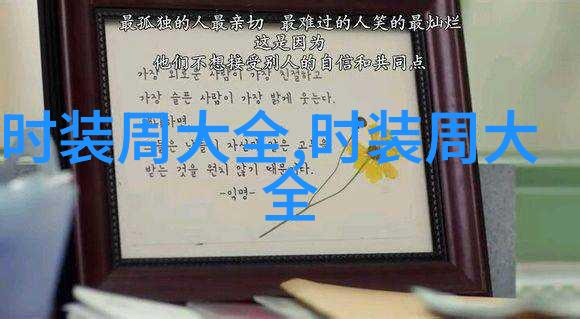 最孤独的人最亲切　最难过的人笑的最灿烂
这是因为
他们不想接受别人的自信和共同点
가장 외로운 사람이 가장 친절하고
가장 슬픈 사람이 가장 밝게 웃는다.
时装周大全,时装周大
全
받는 것을 원치 않기 때문이다.
-익명-